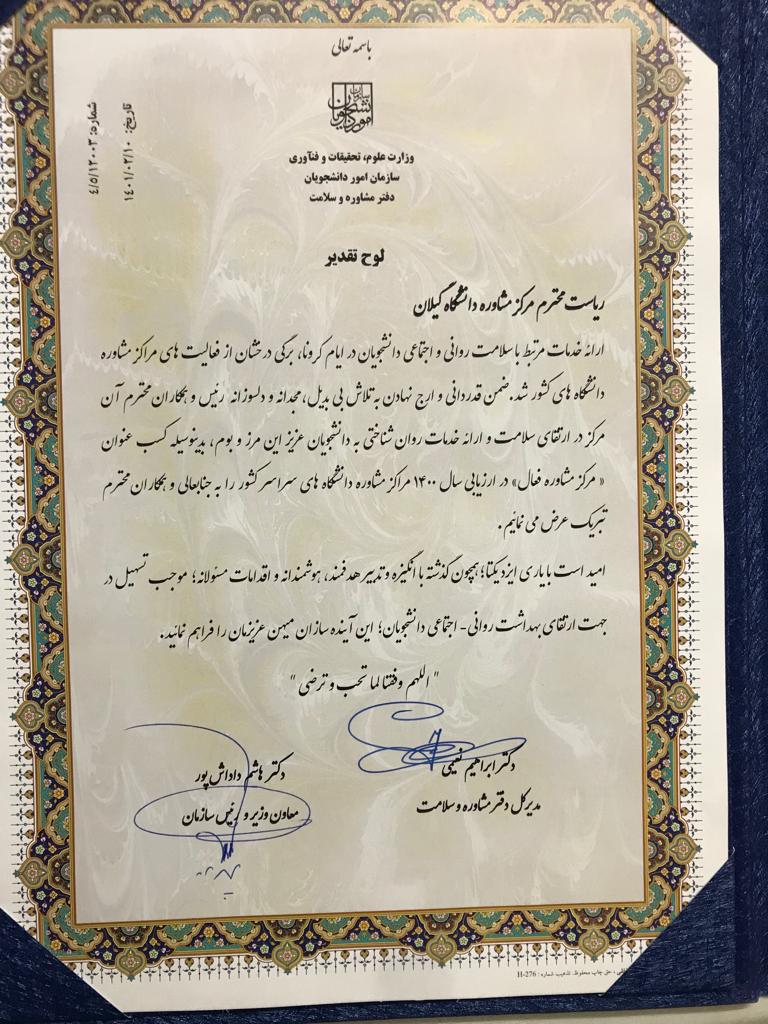 باسمه تعالی
سازمان امور دانشجویان
شماره: ۴/۵/۱۲۰۰۳
تاریخ: ۱۴۰۱/۰۲/۱۰
وزارت علوم، تحقیقات و فنآوری
سازمان امور دانشجویان
دفتر مشاوره و سلامت
لوح تقدیر
ریاست محترم مرکز مشاوره دانشگاه گیلان
ارائه خدمات مرتبط با سلامت روانی و اجتماعی دانشجویان در ایام کرونا، برگی درخشان از فعالیت های مراکز مشاوره
دانشگاه های کشور شد. ضمن قدردانی و ارج نهادن به تلاش بی بدیل، مجدانه و دلسوزانه رئیس و همکاران محترم آن
مرکز در ارتقای سلامت و ارائه خدمات روان شناختی به دانشجویان عزیز این مرز و بوم، بدینوسیله کسب عنوان
« مرکز مشاوره فعال» در ارزیابی سال ۱۴۰۰ مراکز مشاوره دانشگاه های سراسر کشور را به جنابعالی و همکاران محترم
تبریک عرض می نمائیم.
امید است با یاری ایزد یکتا؛ همچون گذشته با انگیزه و تدبیر هدفمند، هوشمندانه و اقدامات مسئولانه؛ موجب تسهیل در
جهت ارتقای بهداشت روانی- اجتماعی دانشجویان؛ این آینده سازان میهن عزیزمان را فراهم نمائید.
" اللهم وفقنا لما تحب و ترضی "
دکتر ابراهیم نعیمی
مدیرکل دفتر مشاوره و سلامت
دکتر هاشم داداش پور
معاون وزیر و رئیس سازمان
حق چاپ محفوظ. تذهیب شماره : H-276